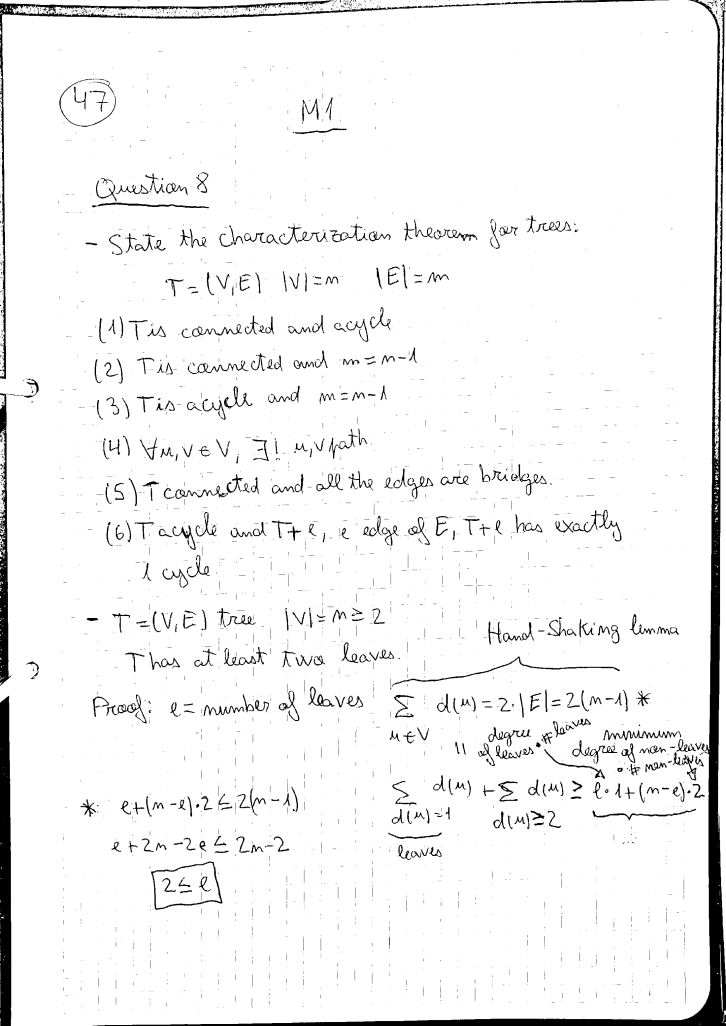 47
M1
Question 8
- State the characterization theorem for trees:
T = (V,E) |V|=n |E|=m
(1) T is connected and acycle
(2) T is connected and m=n-1
(3) T is acycle and m=n-1
(4) ∀u,v ∈ V, ∃! u,v path.
(5) T connected and all the edges are bridges.
(6) T acycle and T+e, e edge of E, T+e has exactly
1 cycle
- T=(V,E) tree |V|=n≥2
Hand-Shaking limma
T has at least two leaves.
Proof: l= number of leaves ∑ d(u) = 2·|E| = 2(n-1) *
u∈V
|| degree of leaves · # leaves
minimum degree of non-leaves · # non-leaves
∑ d(u) + ∑ d(u) ≥ l·1+(n-l)·2
d(u)=1 d(u)≥2
leaves
* l+(n-l)·2 ≤ 2(n-1)
l+2n-2l ≤ 2n-2
2 ≤ l